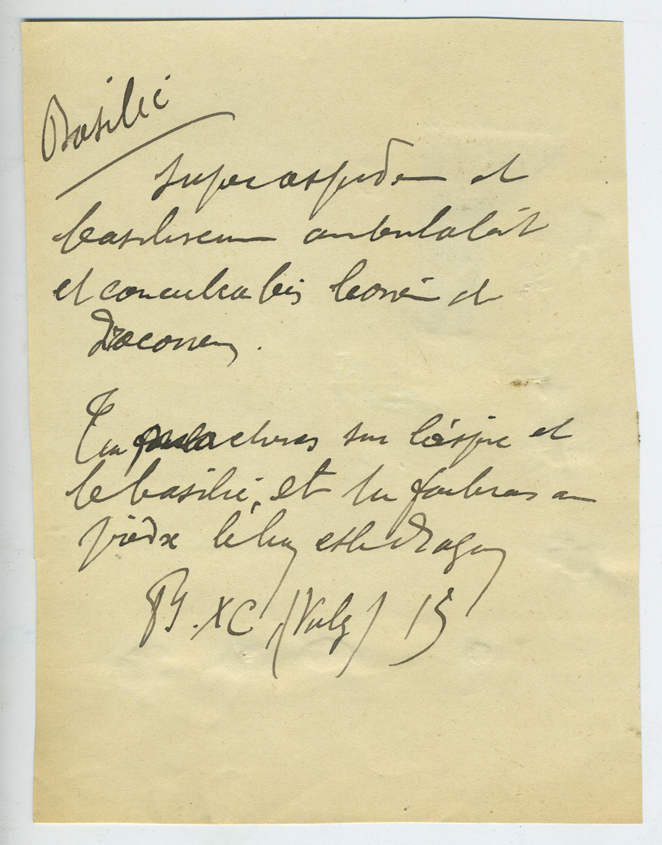 Basilic
Super aspidem et
basiliscum ambulabit
et conculcabis leonem et
Draconem.
Tu marcheras sur l'aspic et
le basilic, et tu fouleras au
pieds le lion et le dragon
Ps. XC (Vulg) 13